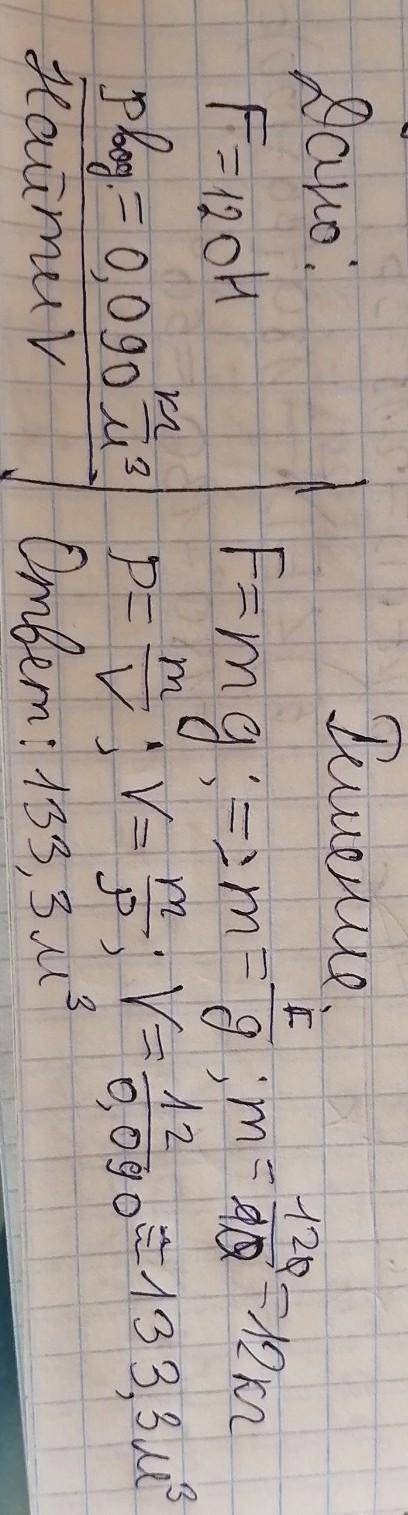 Дано:
F = 120 Н
ρ вод. = 0,090 кг/м³
Найти V
Решение.
F = mg; => m = F/g; m = 120/10 = 12 кг
ρ = m/V; V = m/ρ; V = 12/0,090 ≈ 133,3 м³
Ответ: 133,3 м³